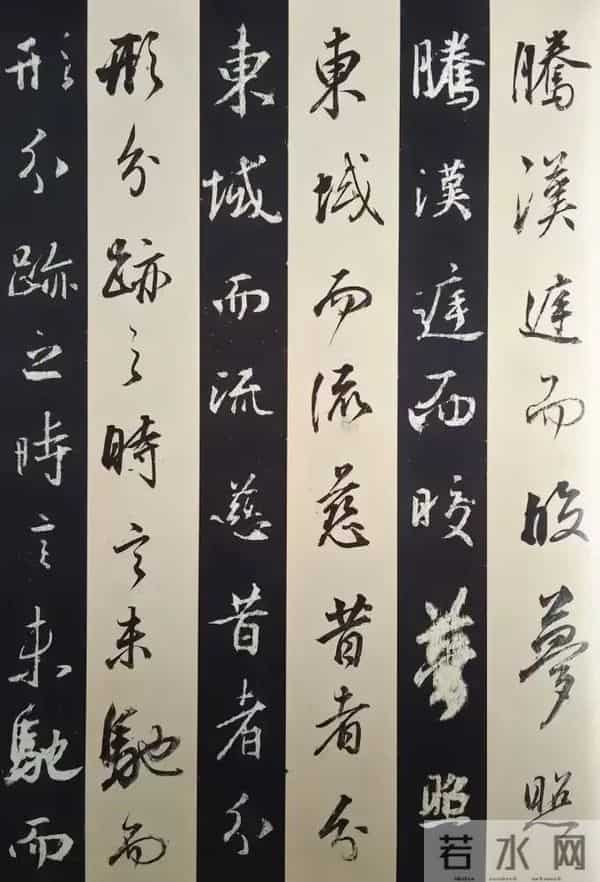 騰漢庭而皎夢照
騰漢庭而皎夢照
東域而流慈昔者分
東域而流慈昔者分
形分跡之時言未馳而
形分跡之時言未馳而
若水网